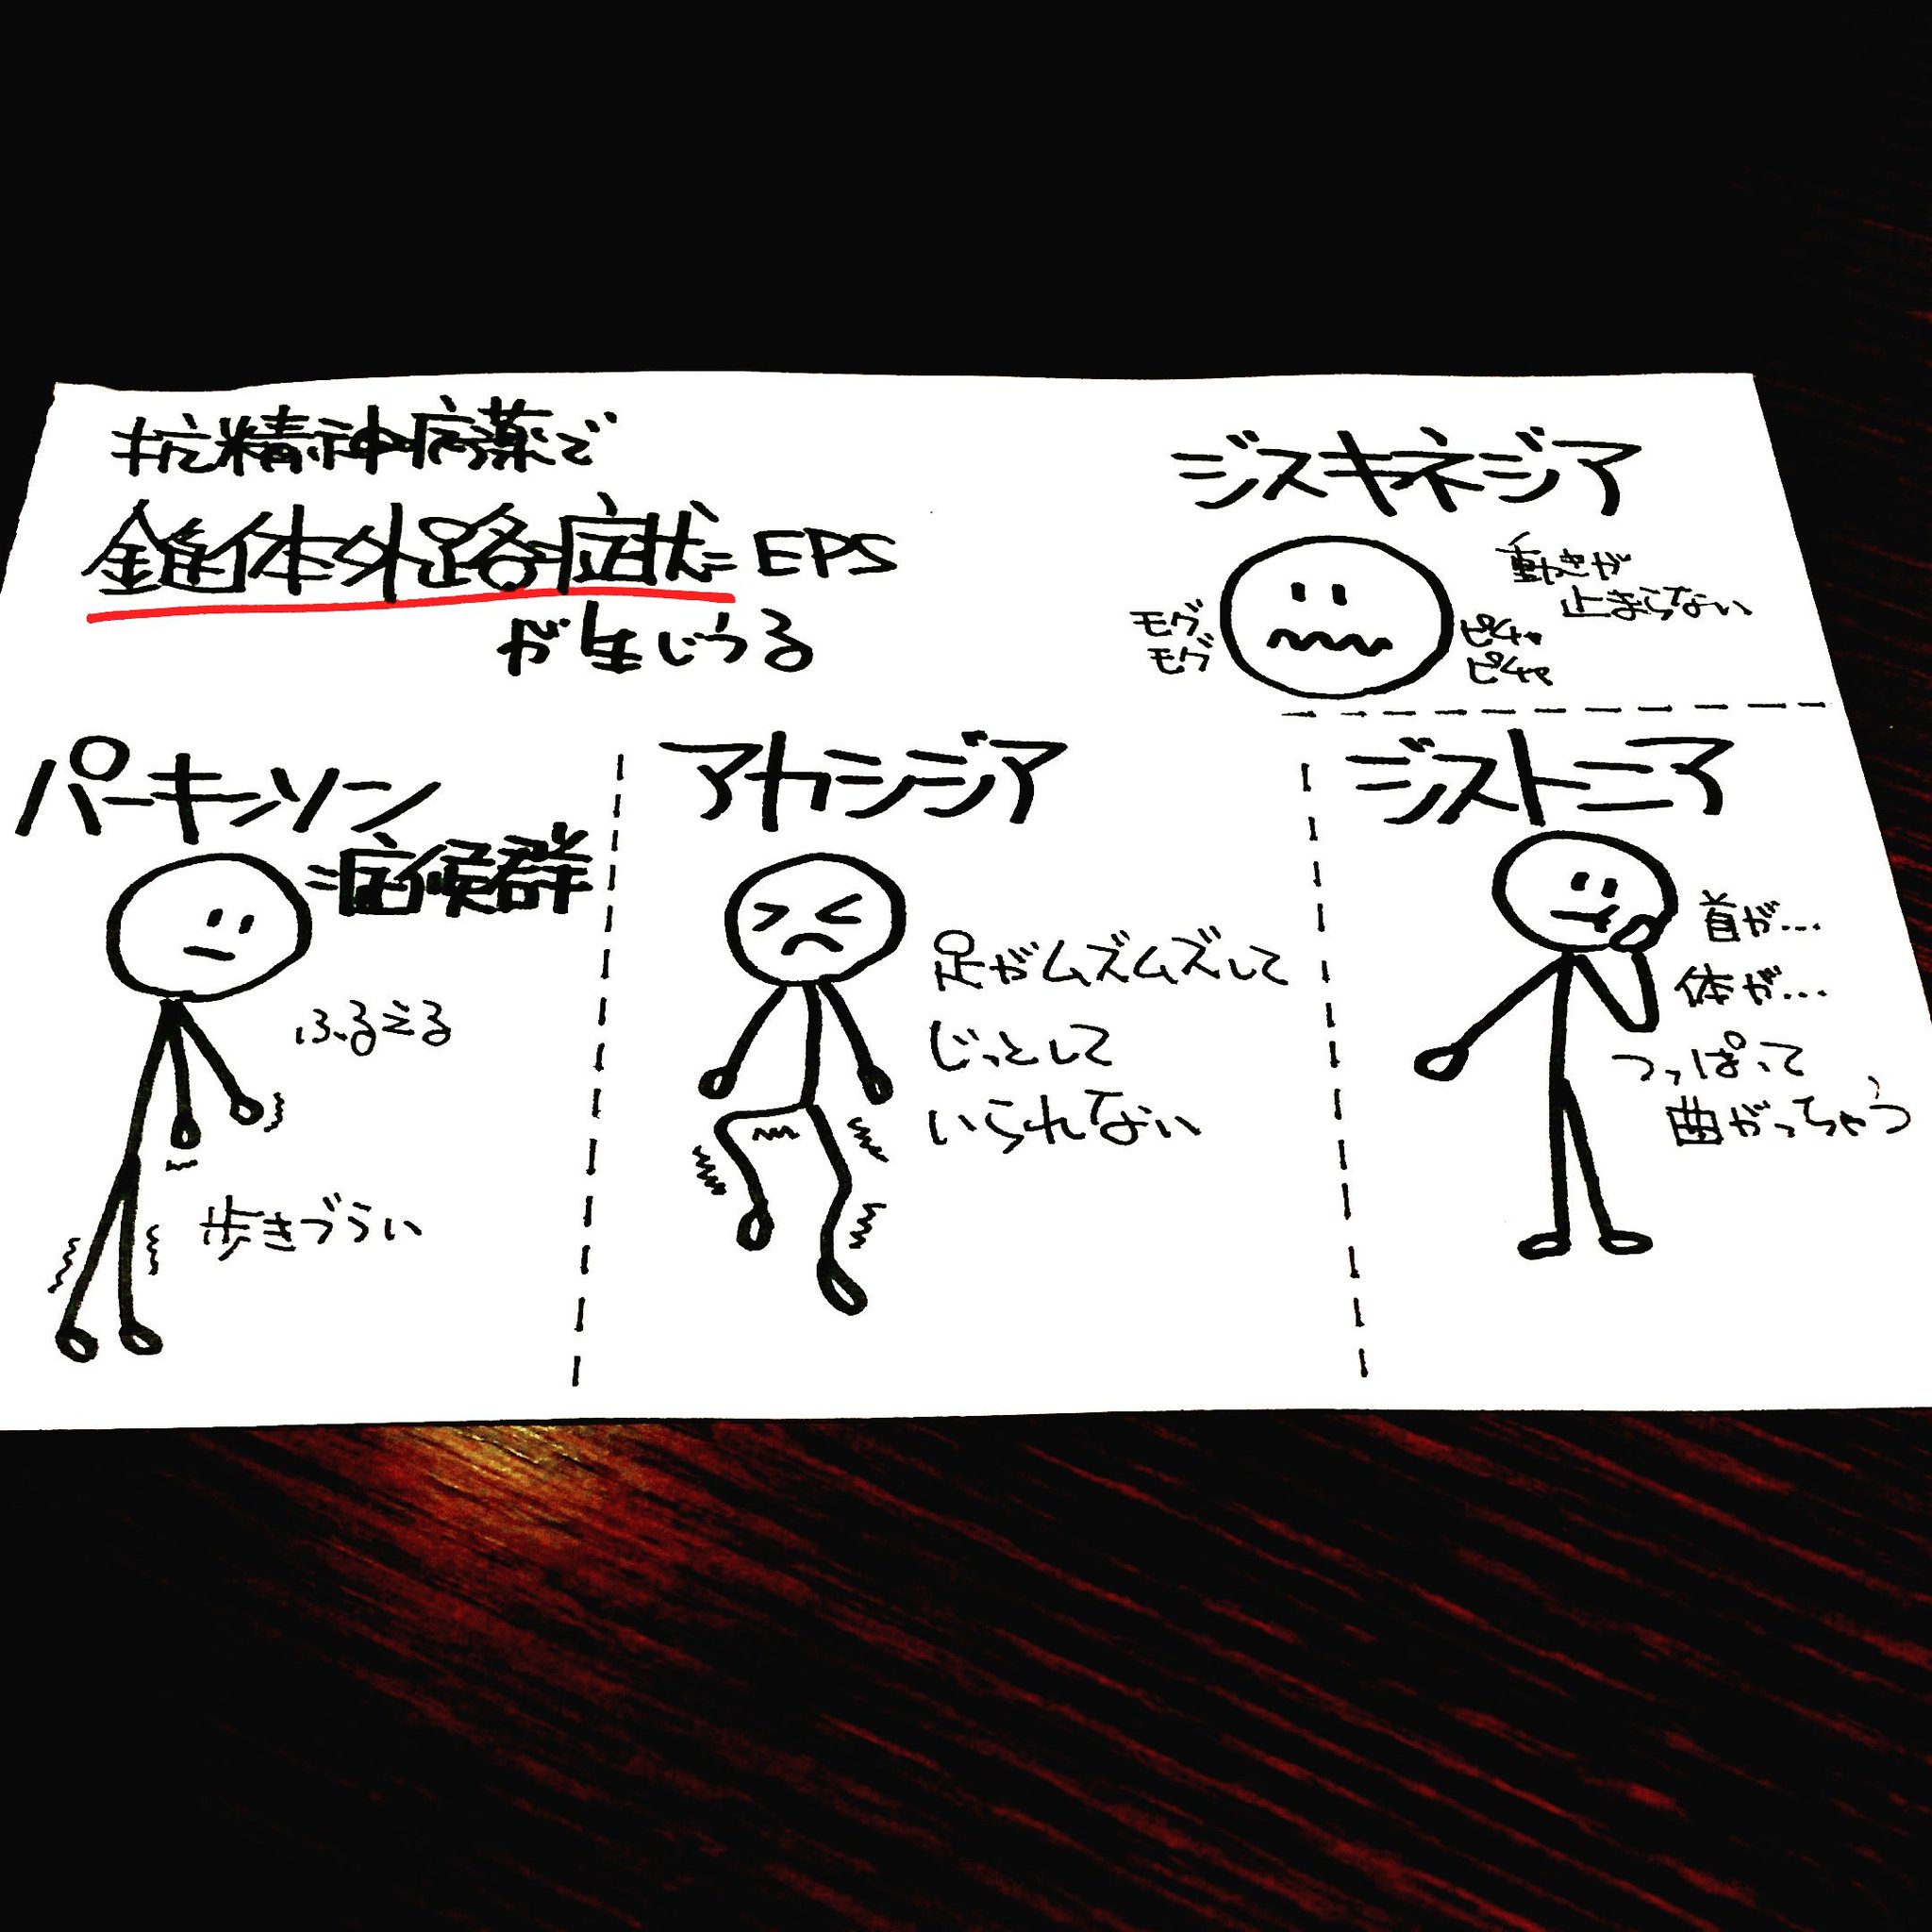 抗精神病薬で
錐体外路症状 EPS
が生じうる
ジスキネジア
動きが
止まらない
モグ
モグ
ピチャ
ピチャ
パーキンソン
症候群
ふるえる
歩きづらい
アカシジア
足がムズムズして
じっとして
いられない
ジストニア
首が…
体が…
つっぱって
曲がっちゃう